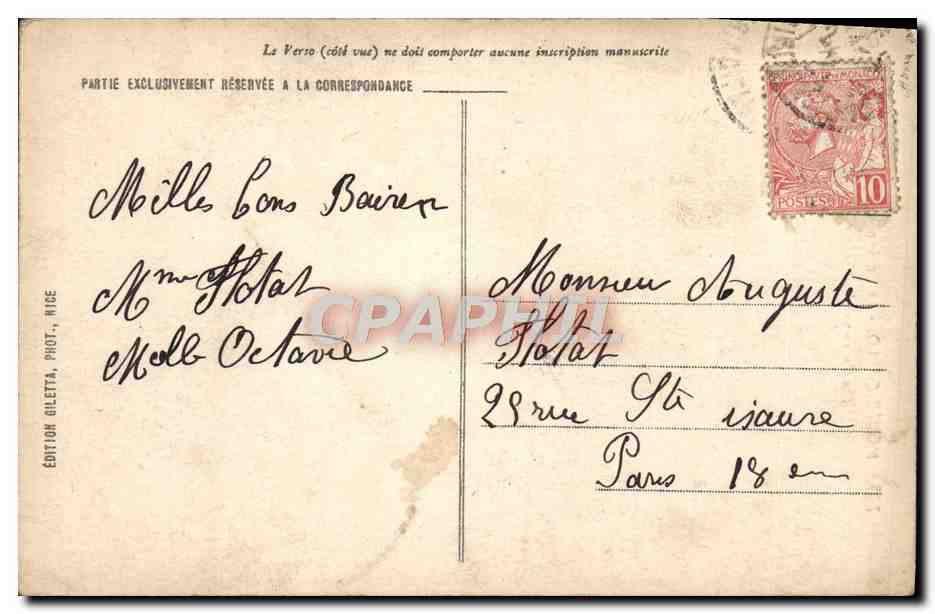 Le Verso (côté vue) ne doit comporter aucune inscription manuscrite
PARTIE EXCLUSIVEMENT RÉSERVÉE A LA CORRESPONDANCE
Milles bons Baiser
Mme Flotat
Melle Octavie
ÉDITION GILETTA, PHOT., NICE
CPAPHIL
POSTES
10
Monsieur Auguste
Flotat
25 rue Ste isaure
Paris 18 em